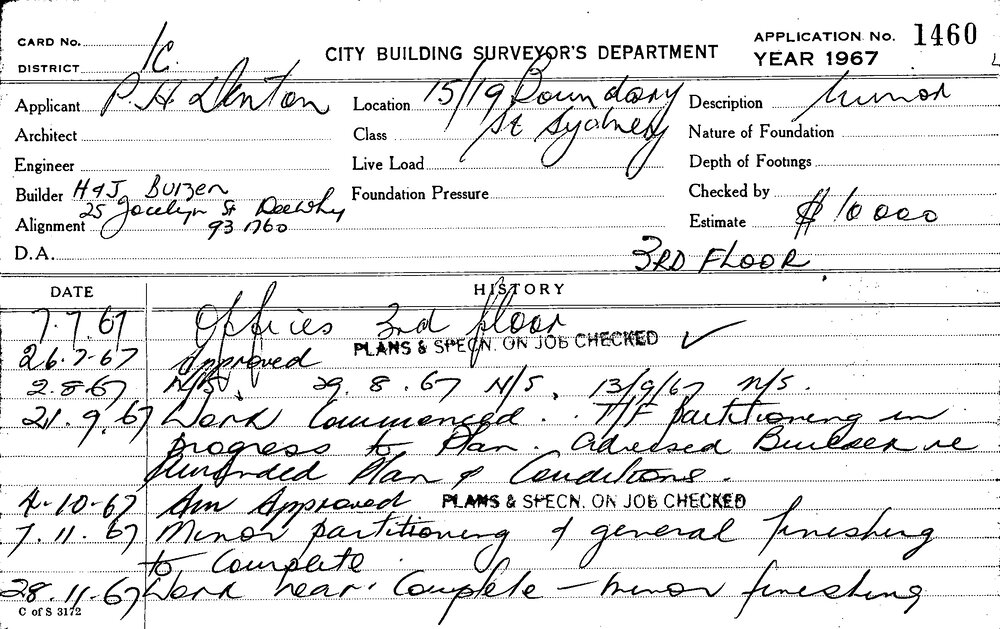 CARD No. 1C
CITY BUILDING SURVEYOR'S DEPARTMENT
APPLICATION No. 1460
DISTRICT
YEAR 1967
Applicant P. H. Denton Location 15/19 Boundary Description Minor
Architect Class St Sydney Nature of Foundation
Engineer Live Load Depth of Footings
Builder H & J Foundation Pressure Checked by
25 Jocelyn St Deewhy
Alignment 93 1760 Estimate $10 000
D.A. 3RD FLOOR.
DATE HISTORY
7.7.67 Offices 3rd floor
26.7.67 Approved PLANS & SPECN. ON JOB CHECKED ✓
2.8.67 N/S. 29.8.67 N/S. 13/9/67 N/S.
21.9.67 Work Commenced. T/F partitioning in
progress to Plan. Advised Builder re
Amended Plan & Conditions.
4-10-67 Am Approved PLANS & SPECN. ON JOB CHECKED
7.11.67 Minor partitioning & general finishing
to complete.
28.11.67 Work near Complete - minor finishing
C of S 3172